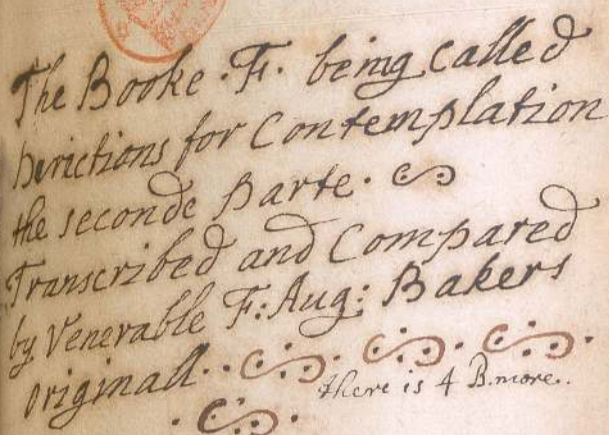 The Booke . F. being called
Dirictions for Contemplation
the seconde Parte.
Transcribed and Compared
by Venerable F: Aug: Bakers
originall..
there is 4 B. more..